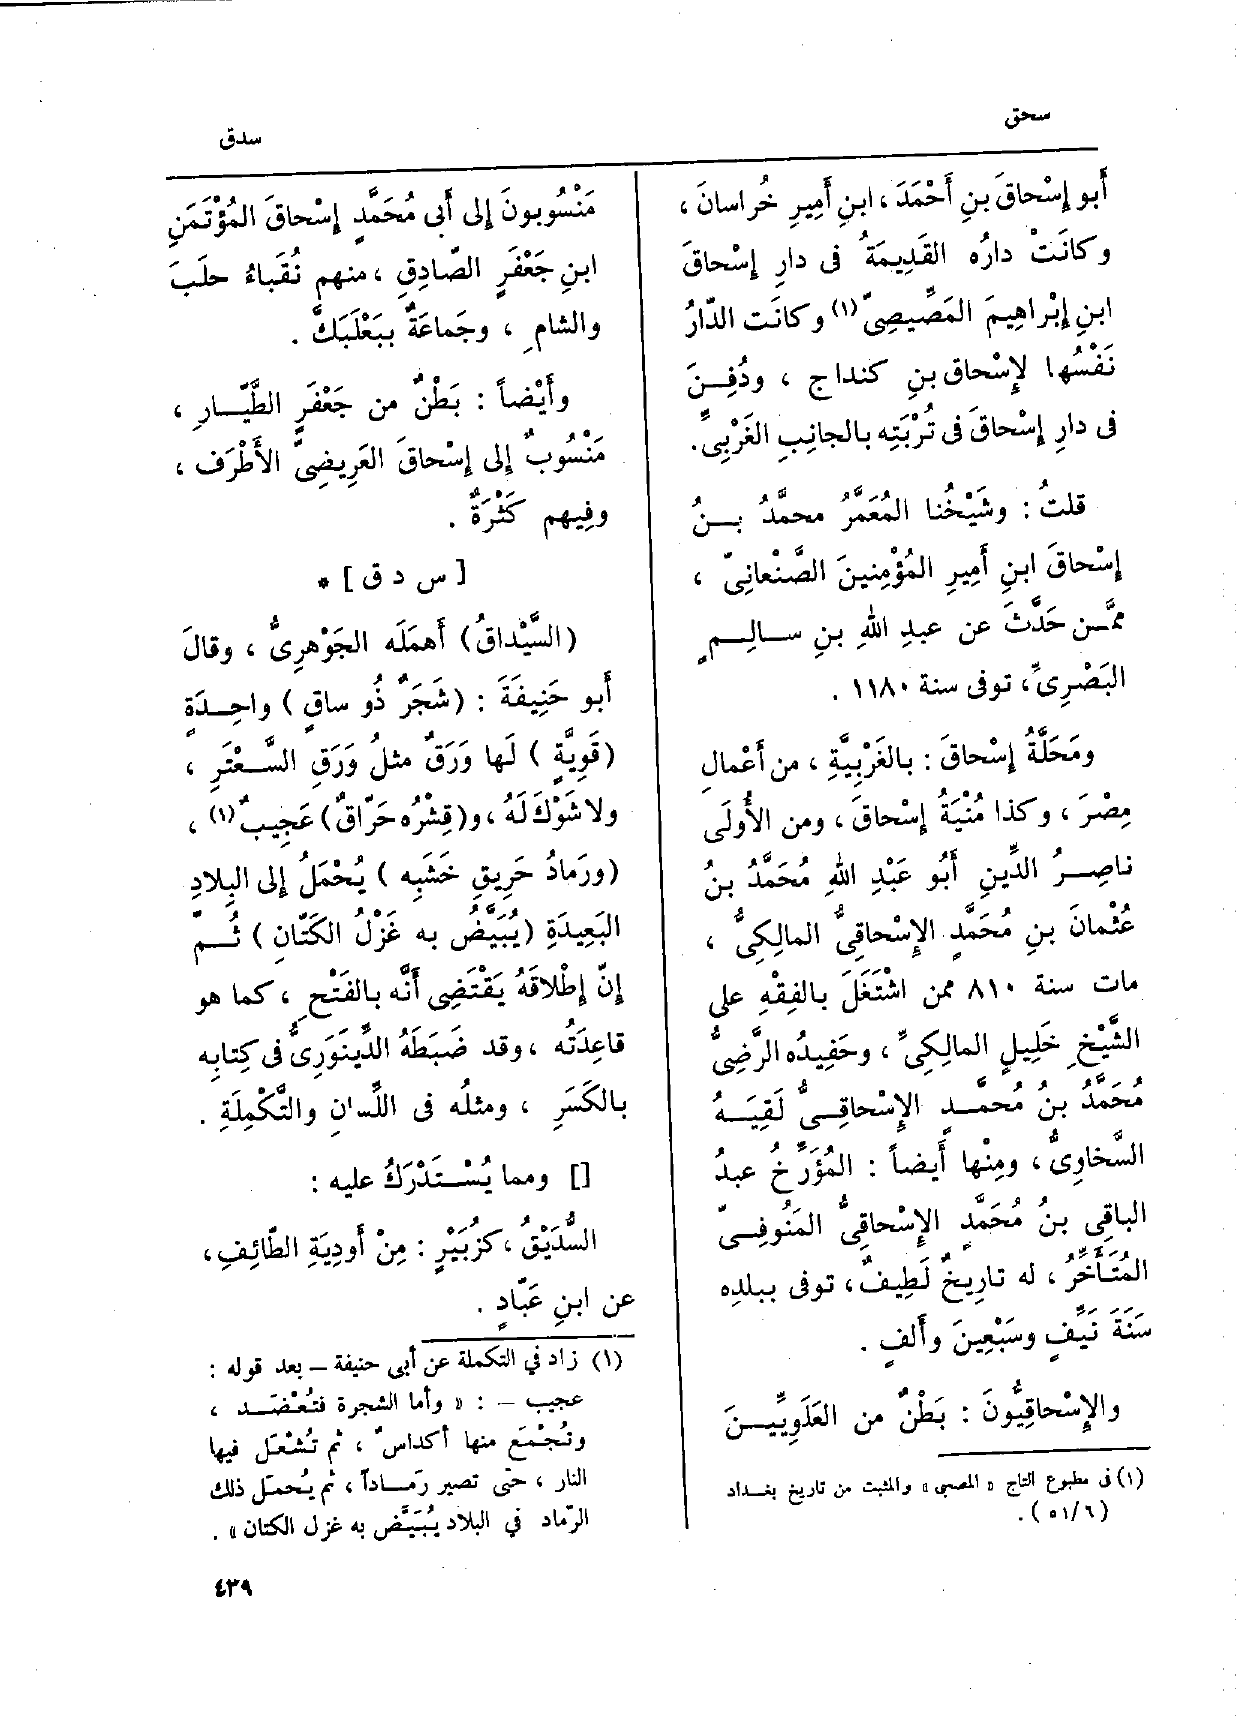 سحق
سدق
أَبو إسْحاقَ بنِ أَحْمَدَ ، ابنِ أَمِيرِ خُراسانَ ،
وكانَتْ دارُه القَدِيمَةُ فى دارِ إسْحاقَ
ابنِ إبْراهِيمَ المَصِّيصِىِّ(١) وكانَت الدّارُ
نَفْسُها لإسْحاق بنِ كنداج ، ودُفِــنَ
فى دارِ إسْحاقَ فى تُرْبَتِه بالجانِبِ الغَرْبِىِّ.
قلتُ : وشَيْخُنا المُعَمَّرُ محمَّدُ بــنُ
إسْحاقَ ابنِ أَمِيرِ المُؤْمِنِينَ الصَّنْعانِىّ ،
ممَّــن حَدَّثَ عن عبدِ اللهِ بنِ ســالِــمٍ
البَصْرِىِّ، توفى سنة ١١٨٠ .
ومَحَلَّةُ إسْحاقَ : بالغَرْبِيَّةِ ، من أَعْمالِ
مِصْرَ ، وكذا مُنْيَةُ إسْحاقَ ، ومن الأُولَى
ناصِــرُ الدِّينِ أَبُو عَبْدِ اللهِ مُحَمَّدُ بنُ
عُثْمانَ بنِ مُحَمَّدٍ الإسْحاقِىُّ المالِكِىُّ ،
مات سنة ٨١٠ ممن اشْتَغَلَ بالفِقْهِ على
الشَّيْخِ خَلِيلٍ المالِكِىِّ ، وحَفِيدُه الرَّضِىُّ
مُحَمَّدُ بنُ مُحمَّــدٍ الإسْحاقِــىُّ لَقِيَــهُ
السَّخاوِىُّ ، ومِنْها أَيضاً : المُؤَرِّخُ عبدُ
الباقِى بنُ مُحَمَّدٍ الإسْحاقِىُّ المَنُوفِــىّ
المُتَأَخِّرُ ، له تارِيخٌ لَطِيفٌ ، توفى ببلدِه
سَنَةَ نَيِّفٍ وسَبْعِينَ وأَلفٍ .
والإسْحاقِيُّونَ : بَطْنٌ من العَلَوِيِّيــنَ
(١) فى مطبوع التاج « المصبى » والمثبت من تاريخ بغــداد
(٥١/٦) .
مَنْسُوبونَ إلى أَبى مُحَمَّدٍ إسْحاقَ المُؤْتَمَنِ
ابنِ جَعْفَرٍ الصّادِقِ ، منهم نُقَباءُ حلَبَ
والشامِ ، وجَماعَةٌ ببَعْلَبَكَّ .
وأَيْضاً : بَطْنٌ من جَعْفَرٍ الطَّيّــارِ ،
مَنْسُوبٌ إلى إسْحاقَ العَرِيضِىِّ الأَطْرَف ،
وفِيهم كَثْرَةٌ .
[ س د ق ] *
(السَّيْداقُ) أَهمَلَه الجَوْهرِىُّ ، وقالَ
أَبو حَنِيفَةَ : (شَجَرٌ ذُو ساقٍ ) واحِــدَةٍ
(قَوِيَّةٍ ) لَها وَرَقٌ مثلُ وَرَقِ السَّــعْتَرِ ،
ولا شَوْكَ لَهُ ، و(قِشْرُه حَرّاقٌ) عَجِيبٌ(١) ،
(ورَمادُ حَرِيقِ خَشَبِه ) يُحْمَلُ إلى البِلادِ
البَعِيدَةِ (يُبَيَّضُ به غَزْلُ الكَتّانِ ) ثُــمّ
إنّ إطْلاقَهُ يَقْتَضِى أَنَّه بالفَتْحِ ، كما هو
قاعِدَتُه ، وقد ضَبَطَهُ الدِّينَوَرِىُّ فى كِتابِه
بالكَسَرِ ، ومثلُه فى اللِّسانِ والتَّكْمِلَةِ .
[] ومما يُسْــتَدْرَكُ عليه :
السُّدَيْقُ ، كزُبَيْرٍ : مِنْ أَودِيَةِ الطّائِفِ،
عن ابنِ عَبّادٍ .
(١) زاد في التكملة عن أبى حنيفة – بعد قوله :
عجيب – : « وأما الشجرة فتُعْضَــد ،
وتُجْمَع منها أكداسٌ ، ثم تُشْعَل فيها
النار ، حتى تصير رَمــاداً ، ثم يُحمَل ذلك
الرّماد في البلاد يُبَيَّض به غزل الكتان » .
٤٣٩